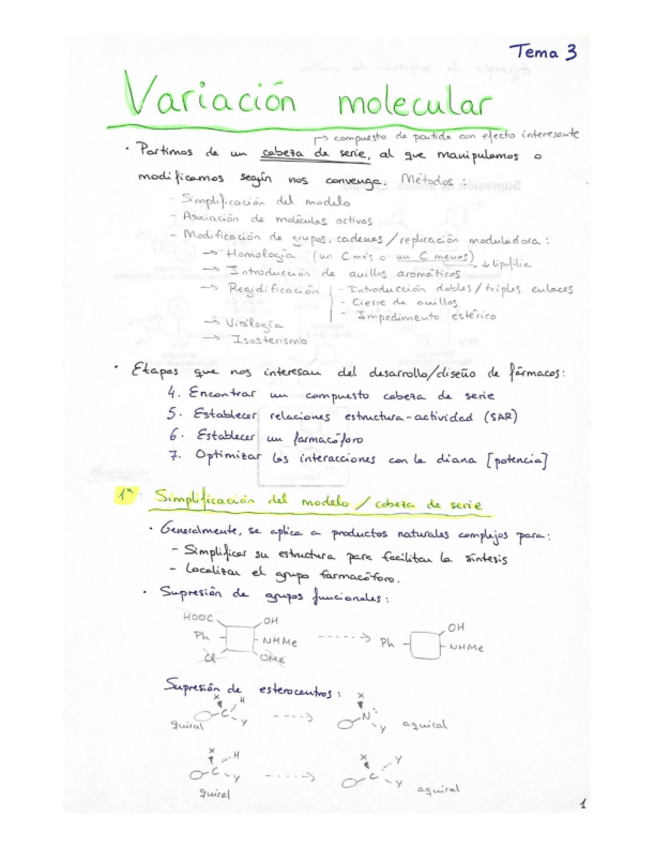 Tema 3
Variación molecular
↳ compuesto de partida con efecto interesante
· Partimos de un cabeza de serie, al que manipulamos o
modificamos según nos convenga. Métodos:
- Simplificación del modelo
- Asociación de moléculas activas
- Modificación de grupos, cadenas / replicación moduladora:
→ Homología (un C más o un C menos)
→ ↓ lipofilia
→ Introducción de anillos aromáticos
→ Rigidificación
- Introducción dobles / triples enlaces
- Cierre de anillos
- Impedimento estérico
→ Vinilogía
→ Isosterismo
· Etapas que nos interesan del desarrollo/diseño de fármacos:
4. Encontrar un compuesto cabeza de serie
5. Establecer relaciones estructura-actividad (SAR)
6. Establecer un farmacóforo
7. Optimizar las interacciones con la diana [potencia]
1º: Simplificación del modelo / cabeza de serie
· Generalmente, se aplica a productos naturales complejos para:
- Simplificar su estructura para facilitar la síntesis
- Localizar el grupo farmacóforo.
· Supresión de grupos funcionales:
HOOC OH
Ph NHMe
Cl OMe
OH
Ph NHMe
Supresión de esterocentros:
X H
C Y
quiral
X
N Y
aquiral
X H
C Y
quiral
X Y
C Y
aquiral
1